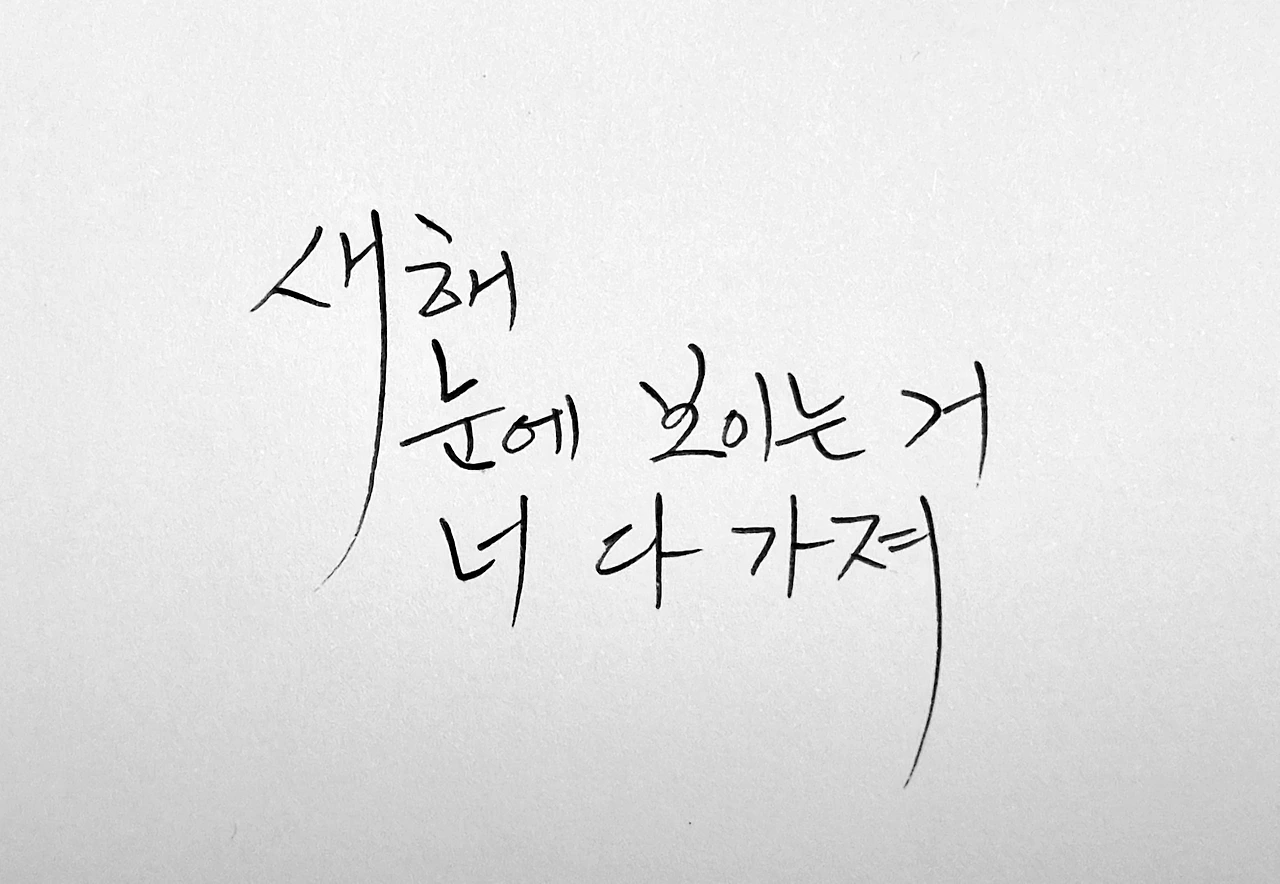 새해
눈에 보이는 거
너 다 가져